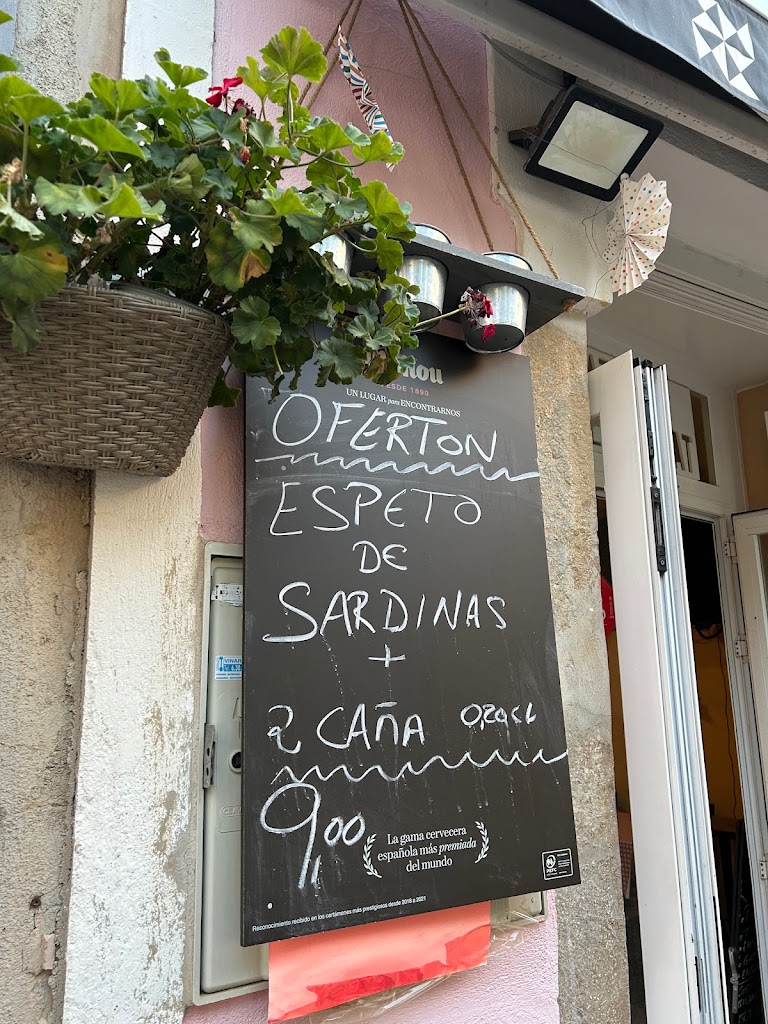 DESDE 1890
UN LUGAR para ENCONTRARNOS
OFERTON
ESPETO
DE
SARDINAS
+
2 CAÑA 0,20CL
9,00
La gama cervecera
española más premiada
del mundo
PEFC
Reconocimiento recibido en los certámenes más prestigiosos desde 2018 a 2021